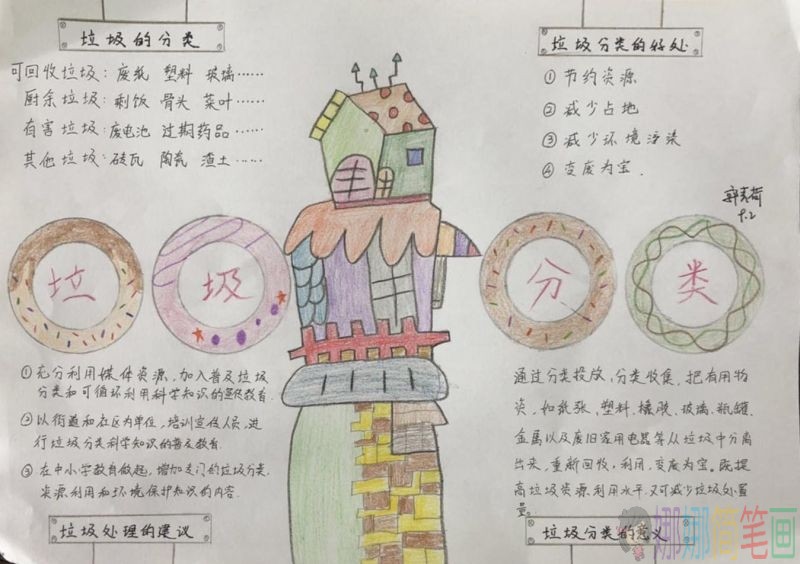 垃圾的分类
可回收垃圾：废纸 塑料 玻璃……
厨余垃圾：剩饭 骨头 菜叶……
有害垃圾：废电池 过期药品……
其他垃圾：砖瓦 陶瓷 渣土……
垃圾分类的好处
①节约资源
②减少占地
③减少环境污染
④变废为宝.
9.2
垃 圾 分 类
①充分利用媒体资源，加入普及垃圾
分类和可循环利用科学知识的教育.
②以街道和社区为单位，培训宣传人员，进
行垃圾分类科学知识的普及教育.
③在中小学教育做起，增加专门的垃圾分类.
资源利用和环境保护知识的内容.
垃圾处理的建议
通过分类投放、分类收集，把有用物
资，如纸张、塑料、橡胶、玻璃、瓶罐、
金属以及废旧家用电器等从垃圾中分离
出来，重新回收，利用，变废为宝。既提
高垃圾资源利用水平，又可减少垃圾处置
量。
垃圾分类的意义
娜娜简笔画